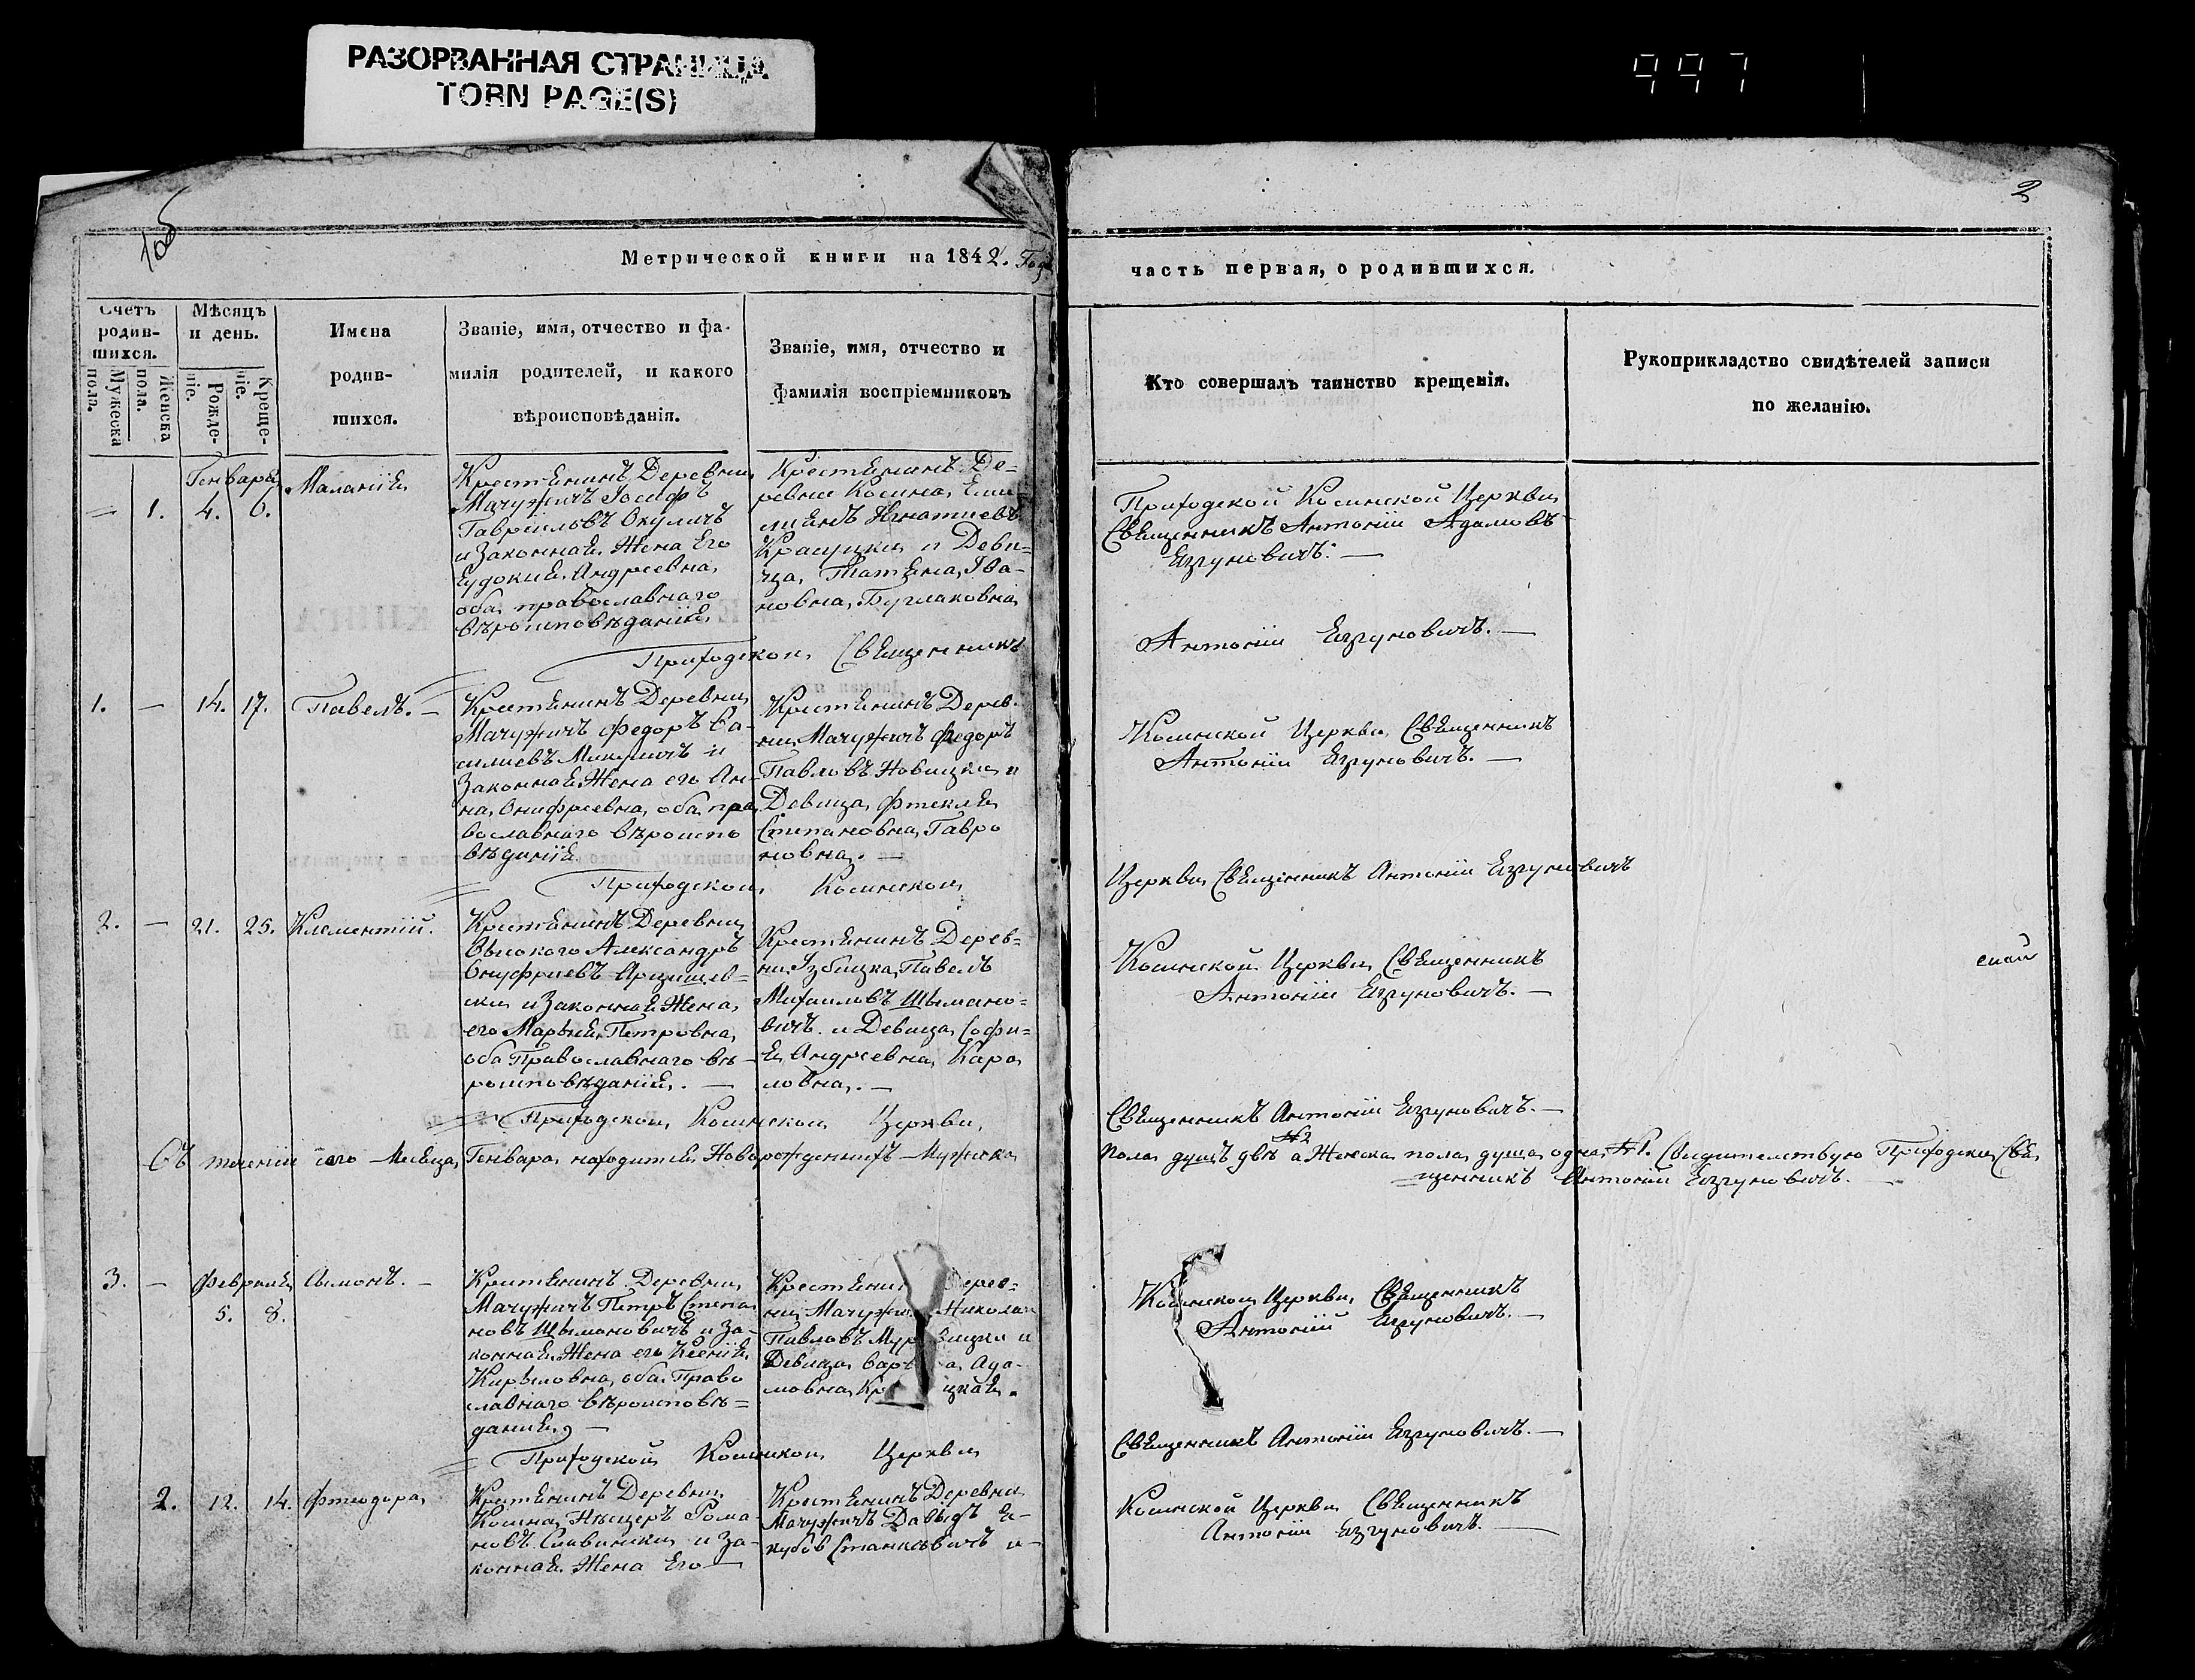 РАЗОРВАННАЯ СТРАНИЦА
TORN PAGE(S)
997
2
Метрической книги на 1842. Годъ
часть первая, о родившихся.
Счетъ родив-шихся.
Мужеска пола.
Женска пола.
Мѣсяцъ и день.
Рожде-ніе.
Креще-ніе.
Имена
родив-
шихся.
Званіе, имя, отчество и фа-
милія родителей, и какого
вѣроисповѣданія.
Званіе, имя, отчество и
фамилія воспріемниковъ
Кто совершалъ таинство крещенія.
Рукоприкладство свидѣтелей записи
по желанію.
Генваря
— 1. 4. 6.
Маланія
Крестянинъ Деревни
Мачужичъ Іосифъ
Гавриловъ Окуличъ
и Законная Жена Его
Еудокия Андреевна
оба православнаго
вѣроисповѣданія
Крестянинъ Де-
ревни Косина Еми-
лиянъ Игнатиевъ
и Деви-
ца Татяна Ива-
новна Буглаковна
Приходской Косинской Церкви
Священникъ Антоній Адамовъ
Язгуновичъ. —
Приходской Священникъ
Антоній Язгуновичъ. —
1. — 14. 17. Павелъ. —
Крестянинъ Деревни
Мачужичъ Федоръ Ва-
силиевъ Микуличъ и
Законная Жена его Ан-
на Онифреевна оба пра
вославнаго вѣроиспо
вѣданія
Крестянинъ Дерев-
ни Мачужичъ Федоръ
Павловъ Новицки и
Девица Фтекля
Степановна Гавро
новна. —
Косинской Церкви Священникъ
Антоній Язгуновичъ. —
Приходской Косинской
Церкви Священникъ Антоній Язгуновичъ
2. — 21. 25. Клементій.
Крестянинъ Деревни
Высокого Александръ
Онуфриевъ Арцишев-
ски и Законная Жена
его Марыя Петровна
оба Православнаго вѣ-
роисповѣданія. —
Крестянинъ Дерев-
ни Избицка Павелъ
Михаиловъ Шымано-
вичъ и Девица Софи-
я Андреевна Каро
ловна. —
Косинской Церкви Священникъ
Антоній Язгуновичъ. —
Приходской Косинской Церкви
Священникъ Антоній Язгуновичъ. —
Въ теченіи сего Месяца Генваря находится Новорожденныхъ Мужеска
пола душъ двѣ №2 а Женска пола душа одна №1. Свидителствую Приходски Свя
щенникъ Антоній Язгуновичъ.
3. — Февраля Сымонъ. —
5. 8.
Крестянинъ Деревни
Мачужичъ Петръ Степа
новъ Шымановичъ и За-
конная Жена его Ксенія
Кирыловна оба Право
славнаго вѣроисповѣ=
дания, —
Дерев=
ни Николаи
Павловъ
Девица Ада-
мовна
Косинской Церкви Священникъ
Антоній Язгуновичъ. —
Приходской Косинской Церкви
Священникъ Антоній Язгуновичъ. —
2. 12. 14. Фтеодора
Крестянинъ Деревни
Косина Рома-
новъ и За-
конная Жена Его —
Крестянинъ Деревни
Мачужичъ Давыдъ Я-
кубов Станкѣвичъ и
Косинской Церкви Священникъ
Антоній Язгуновичъ. —